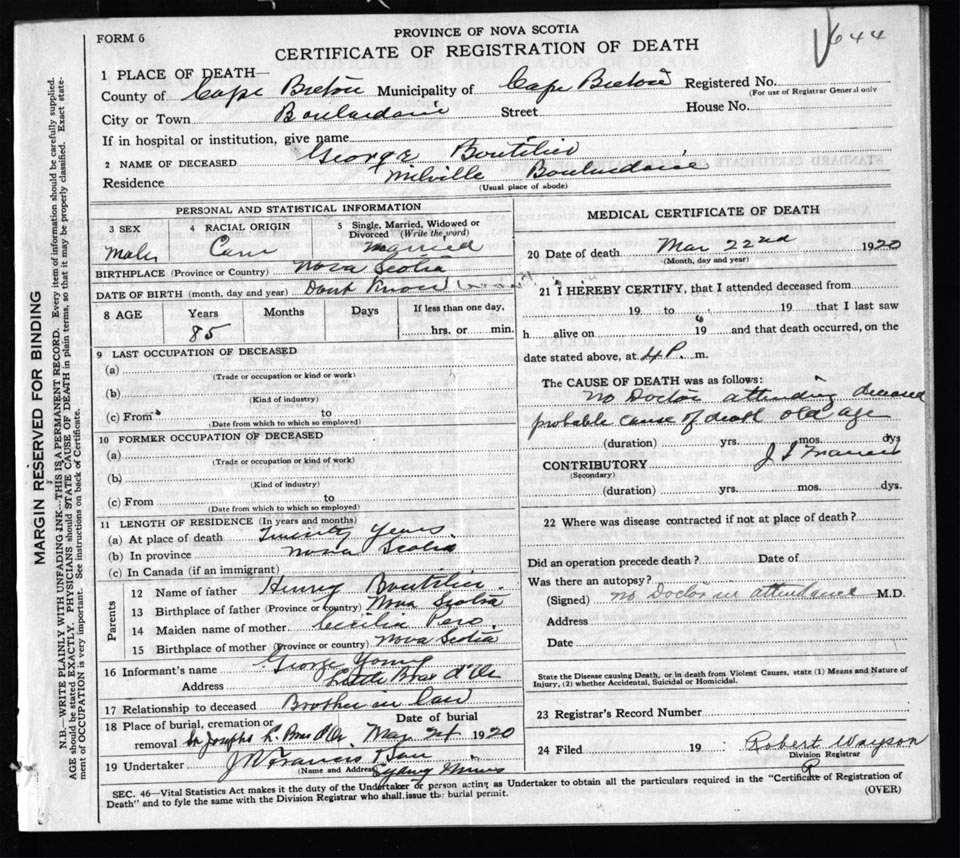 FORM 6
PROVINCE OF NOVA SCOTIA
CERTIFICATE OF REGISTRATION OF DEATH
644
1 PLACE OF DEATH—
County of Cape Breton Municipality of Cape Breton Registered No.
(For use of Registrar General only
City or Town Boulardarie Street House No.
If in hospital or institution, give name
2 NAME OF DECEASED George Boutilier
Residence Milville Boulardarie
(Usual place of abode)
PERSONAL AND STATISTICAL INFORMATION
3 SEX 4 RACIAL ORIGIN 5 Single, Married, Widowed or Divorced (Write the word)
Male Married
BIRTHPLACE (Province or Country) Nova Scotia
DATE OF BIRTH (month, day and year) Dont Know
8 AGE Years Months Days If less than one day,
85 hrs. or min.
9 LAST OCCUPATION OF DECEASED
(a)
(Trade or occupation or kind or work)
(b)
(Kind of industry)
(c) From to
(Date from which to which so employed)
10 FORMER OCCUPATION OF DECEASED
(a)
(Trade or occupation or kind of work)
(b)
(Kind of industry)
(c) From to
(Date from which to which so employed)
11 LENGTH OF RESIDENCE (In years and months)
(a) At place of death Twenty Years
(b) In province Nova Scotia
(c) In Canada (if an immigrant)
Parents
12 Name of father Henry Boutilier
13 Birthplace of father (Province or country) Nova Scotia
14 Maiden name of mother Cecilia
15 Birthplace of mother (Province or country) Nova Scotia
16 Informant's name George Young
Address Little Bras d'Or
17 Relationship to deceased Brother in law
18 Place of burial, cremation or removal St Josephs L. Bras d'Or Date of burial Mar 24 1920
19 Undertaker J R Francis
(Name and Address) Sydney Mines
MEDICAL CERTIFICATE OF DEATH
20 Date of death Mar 22nd 1920
(Month, day and year)
21 I HEREBY CERTIFY, that I attended deceased from
19 to 19 that I last saw
h alive on 19 and that death occurred, on the
date stated above, at 4 P. m.
The CAUSE OF DEATH was as follows:
No Doctor attending deceased
probable cause of death old age
(duration) yrs. mos. dys
CONTRIBUTORY
(Secondary)
(duration) yrs. mos. dys.
22 Where was disease contracted if not at place of death?
Did an operation precede death? Date of
Was there an autopsy?
(Signed) No Doctor in attendance M.D.
Address
Date
State the Disease causing Death, or in death from Violent Causes, state (1) Means and Nature of
Injury, (2) whether Accidental, Suicidal or Homicidal.
23 Registrar's Record Number
24 Filed 19 Robert Wayson
Division Registrar
SEC. 46—Vital Statistics Act makes it the duty of the Undertaker or person acting as Undertaker to obtain all the particulars required in the "Certificate of Registration of
Death" and to fyle the same with the Division Registrar who shall issue the burial permit. (OVER)
MARGIN RESERVED FOR BINDING
N.B.—WRITE PLAINLY WITH UNFADING INK—THIS IS A PERMANENT RECORD. Every item of information should be carefully supplied.
AGE should be stated EXACTLY. PHYSICIANS should STATE CAUSE OF DEATH in plain terms, so that it may be properly classified. Exact state-
ment of OCCUPATION is very important. See instructions on back of Certificate.